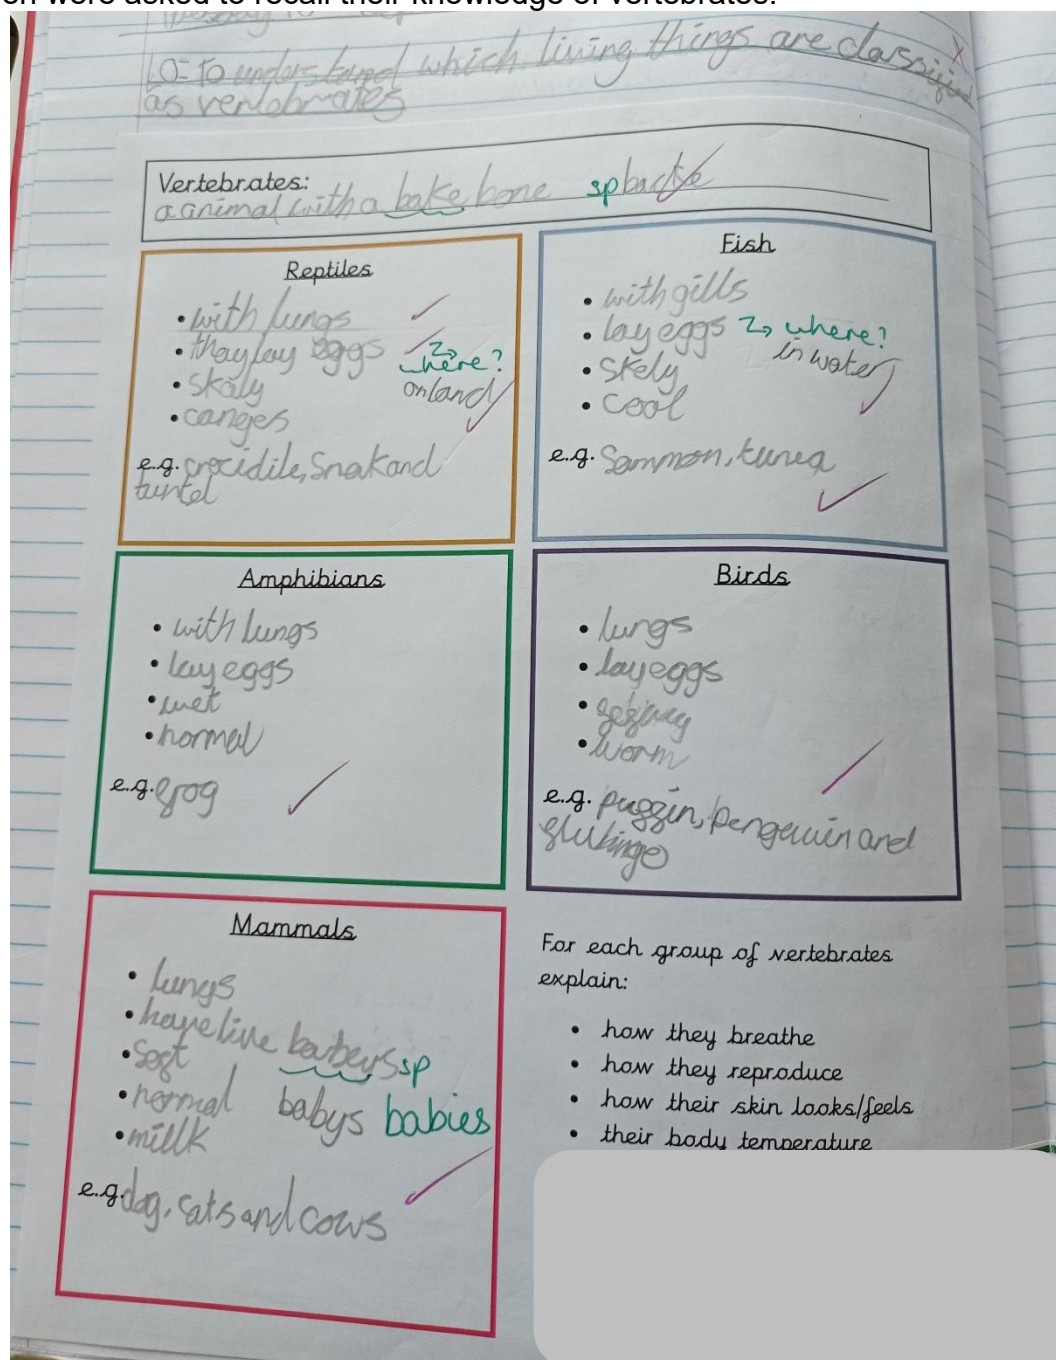 en were asked to recall their knowledge of vertebrates.
LO: To understand which living things are classified
as vertebrates
Vertebrates:
a animal with a bake bone sp backe
Reptiles
• with lungs
• thay lay eggs
where?
on land
• skaly
• canges
e.g. crocidile, Snak and
turtel
Fish
• with gills
• lay eggs where?
in water
• skely
• cool
e.g. Sammon, tunea
Amphibians
• with lungs
• lay eggs
• wet
• normal
e.g. frog
Birds
• lungs
• lay eggs
• worm
e.g. puffin, pengewin and
Mammals
• lungs
• have live babeys sp
babys babies
• soft
• normal
• millk
e.g. dog, cats and cows
For each group of vertebrates
explain:
• how they breathe
• how they reproduce
• how their skin looks/feels
• their body temperature